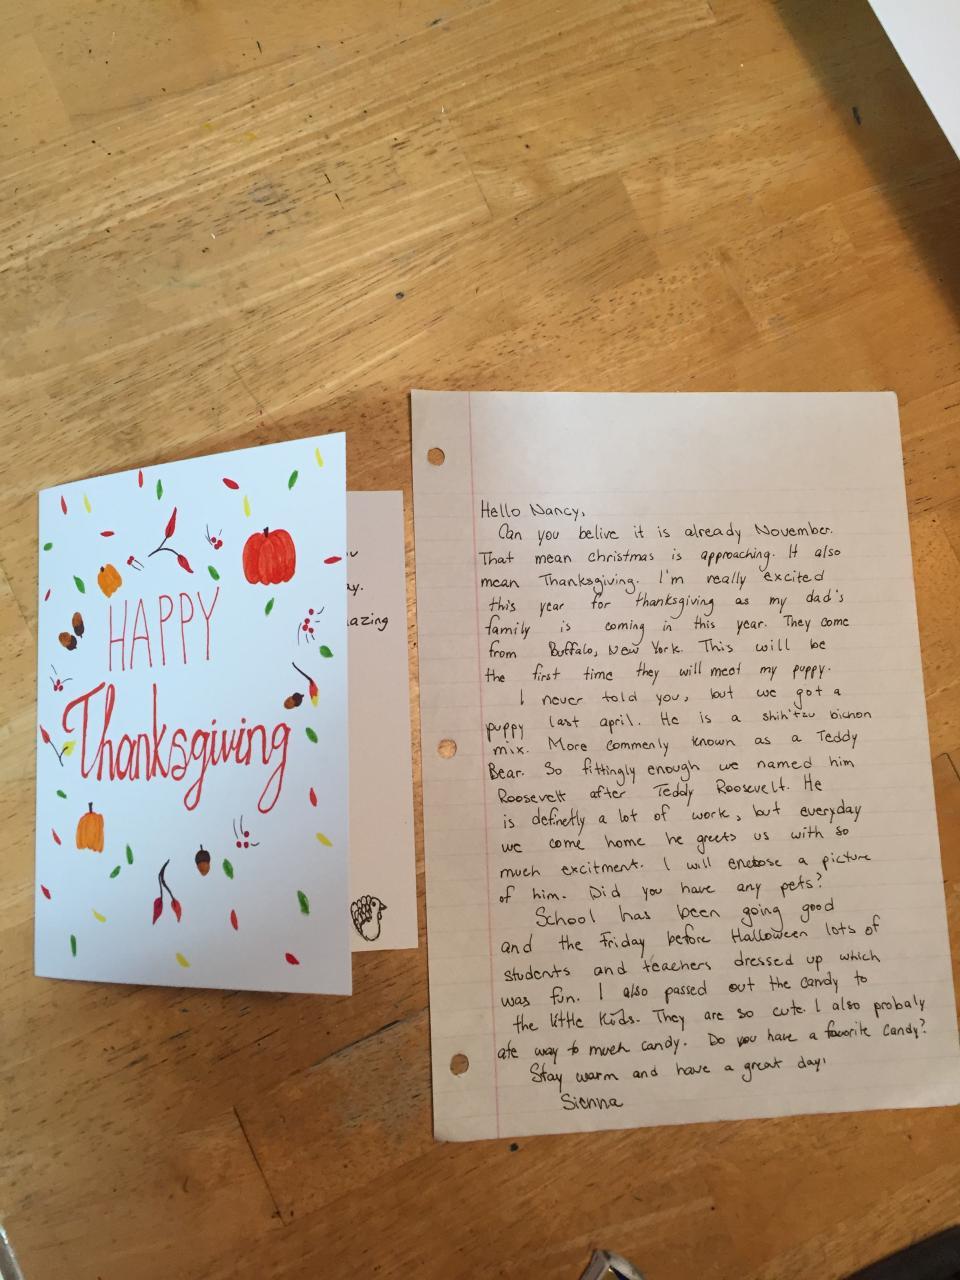 HAPPY
Thanksgiving
ay.
azing
Hello Nancy,
Can you belive it is already November.
That mean christmas is approaching. It also
mean Thanksgiving. I'm really excited
this year for thanksgiving as my dad's
family is coming in this year. They come
from Buffalo, New York. This will be
the first time they will meet my puppy.
I never told you, but we got a
puppy last april. He is a shih'tzu bichon
mix. More commenly known as a Teddy
Bear. So fittingly enough we named him
Roosevelt after Teddy Roosevelt. He
is definetly a lot of work, but everyday
we come home he greets us with so
much excitment. I will a picture
of him. Did you have any pets?
School has been going good
and the Friday before Halloween lots of
students and teachers dressed up which
was fun. I also passed out the candy to
the little kids. They are so cute. I also probaly
ate way to much candy. Do you have a favorite candy?
Stay warm and have a great day!
Sienna